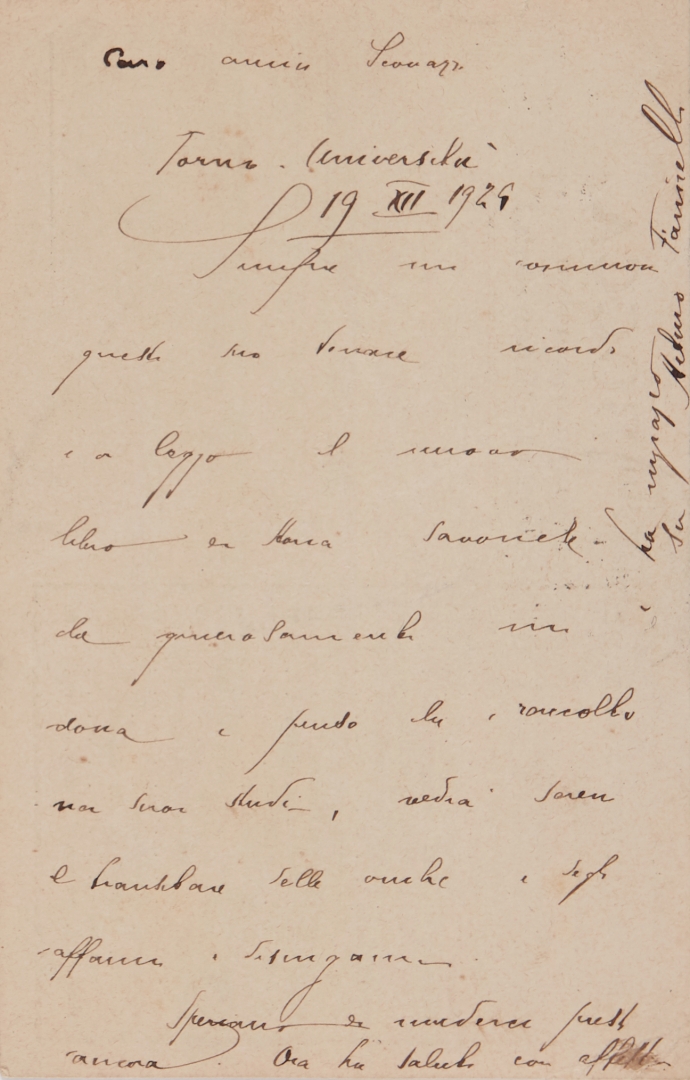 Caro amico
Torino. Università
19 XII 1926
Sempre mi commuove
questo suo tenace ricordo
e a leggo il nuovo
libro di storia
che generosamente mi
dona e penso che è raccolto
nei suoi studi, vedrà sereno
il transitare delle ombre e degli
affanni e disinganni.
Speriamo di rivederci presto
ancora. Ora ha saluti con affetto
ha ringrazia
Suo Arturo Farinelli